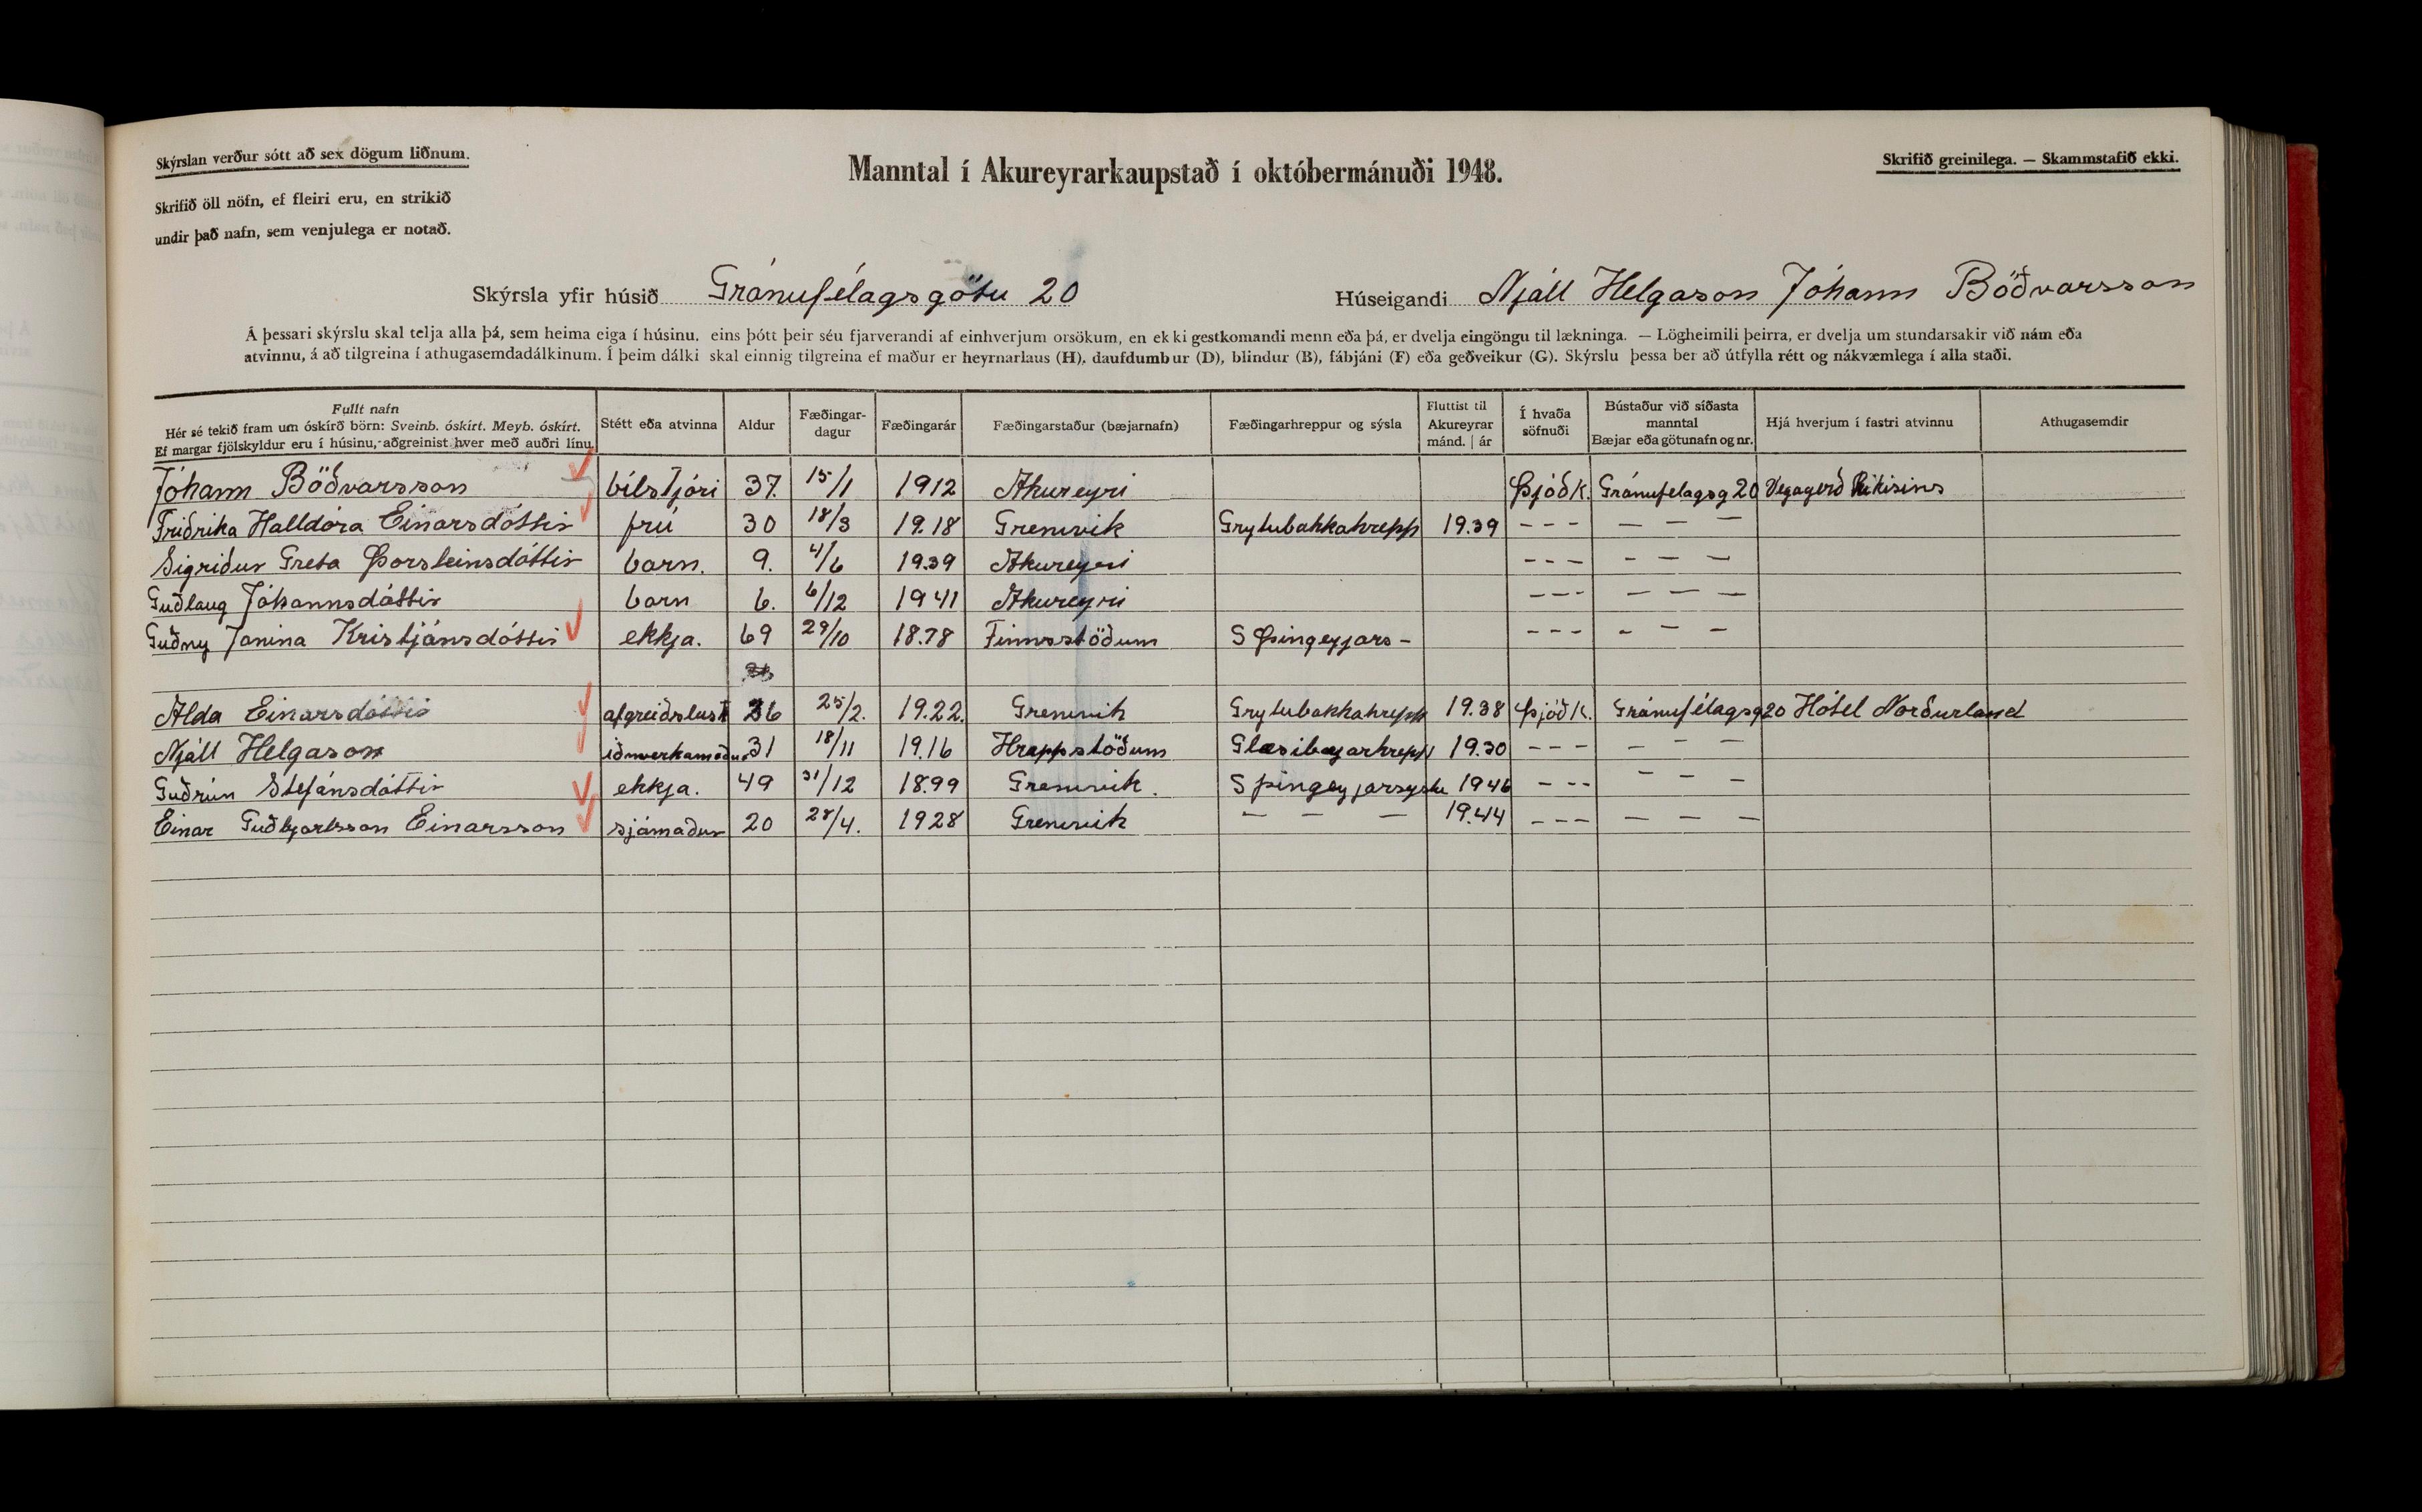 Skýrslan verður sótt að sex dögum liðnum.
Manntal í Akureyrarkaupstað í októbermánuði 1948.
Skrifið greinilega. — Skammstafið ekki.
Skrifið öll nöfn, ef fleiri eru, en strikið
undir það nafn, sem venjulega er notað.
Skýrsla yfir húsið Gránufélagsgötu 20 Húseigandi Njáll Helgason Jóhann Böðvarsson
Á þessari skýrslu skal telja alla þá, sem heima eiga í húsinu, eins þótt þeir séu fjarverandi af einhverjum orsökum, en ekki gestkomandi menn eða þá, er dvelja eingöngu til lækninga. — Lögheimili þeirra, er dvelja um stundarsakir við nám eða
atvinnu, á að tilgreina í athugasemdadálkinum. Í þeim dálki skal einnig tilgreina ef maður er heyrnarlaus (H), daufdumbur (D), blindur (B), fábjáni (F) eða geðveikur (G). Skýrslu þessa ber að útfylla rétt og nákvæmlega í alla staði.
Fullt nafn
Hér sé tekið fram um óskírð börn: Sveinb. óskírt. Meyb. óskírt.
Ef margar fjölskyldur eru í húsinu, aðgreinist hver með auðri línu.
Stétt eða atvinna
Aldur
Fæðingar-
dagur
Fæðingarár
Fæðingarstaður (bæjarnafn)
Fæðingarhreppur og sýsla
Fluttist til
Akureyrar
mánd. | ár
Í hvaða
söfnuði
Bústaður við síðasta
manntal
Bæjar eða götunafn og nr.
Hjá hverjum í fastri atvinnu
Athugasemdir
Jóhann Böðvarsson bílstjóri 37. 15/1 1912 Akureyri Þjóðk. Gránufelagsg 20 Vegagerð Rikisins
Friðrika Halldóra Einarsdóttir frú 30 18/3 19.18 Grenivik Grytubakkahrepp 19.39 - - - — — —
Sigriður Greta Þorsteinsdóttir barn. 9. 4/6 19.39 Akureyri - - - — — —
Guðlaug Jóhannsdóttir barn 6. 6/12 1941 Akureyri - - - — — —
Guðny Janina Kristjánsdóttir ekkja. 69 29/10 18.78 Finnsstöðum S Þingeyjars - - - - — — —
Alda Einarsdóttir afgreiðslust 26 25/2. 19.22. Grenivik Grytubakkahrepp 19.38 Þjóðk. Gránufélagsg 20 Hótel Norðurland
Njáll Helgason iðnverkamaður 31 18/11 19.16 Hrappstöðum Glæsibæjarhrepp 19.30 - - - — — —
Guðrún Stefánsdóttir ekkja. 49 31/12 18.99 Grenivik. S þingeyjarsyslu 1946 - - - — — —
Einar Guðbjartsson Einarsson sjómaður 20 28/4. 1928 Grenivik — — — 19.44 - - - — — —